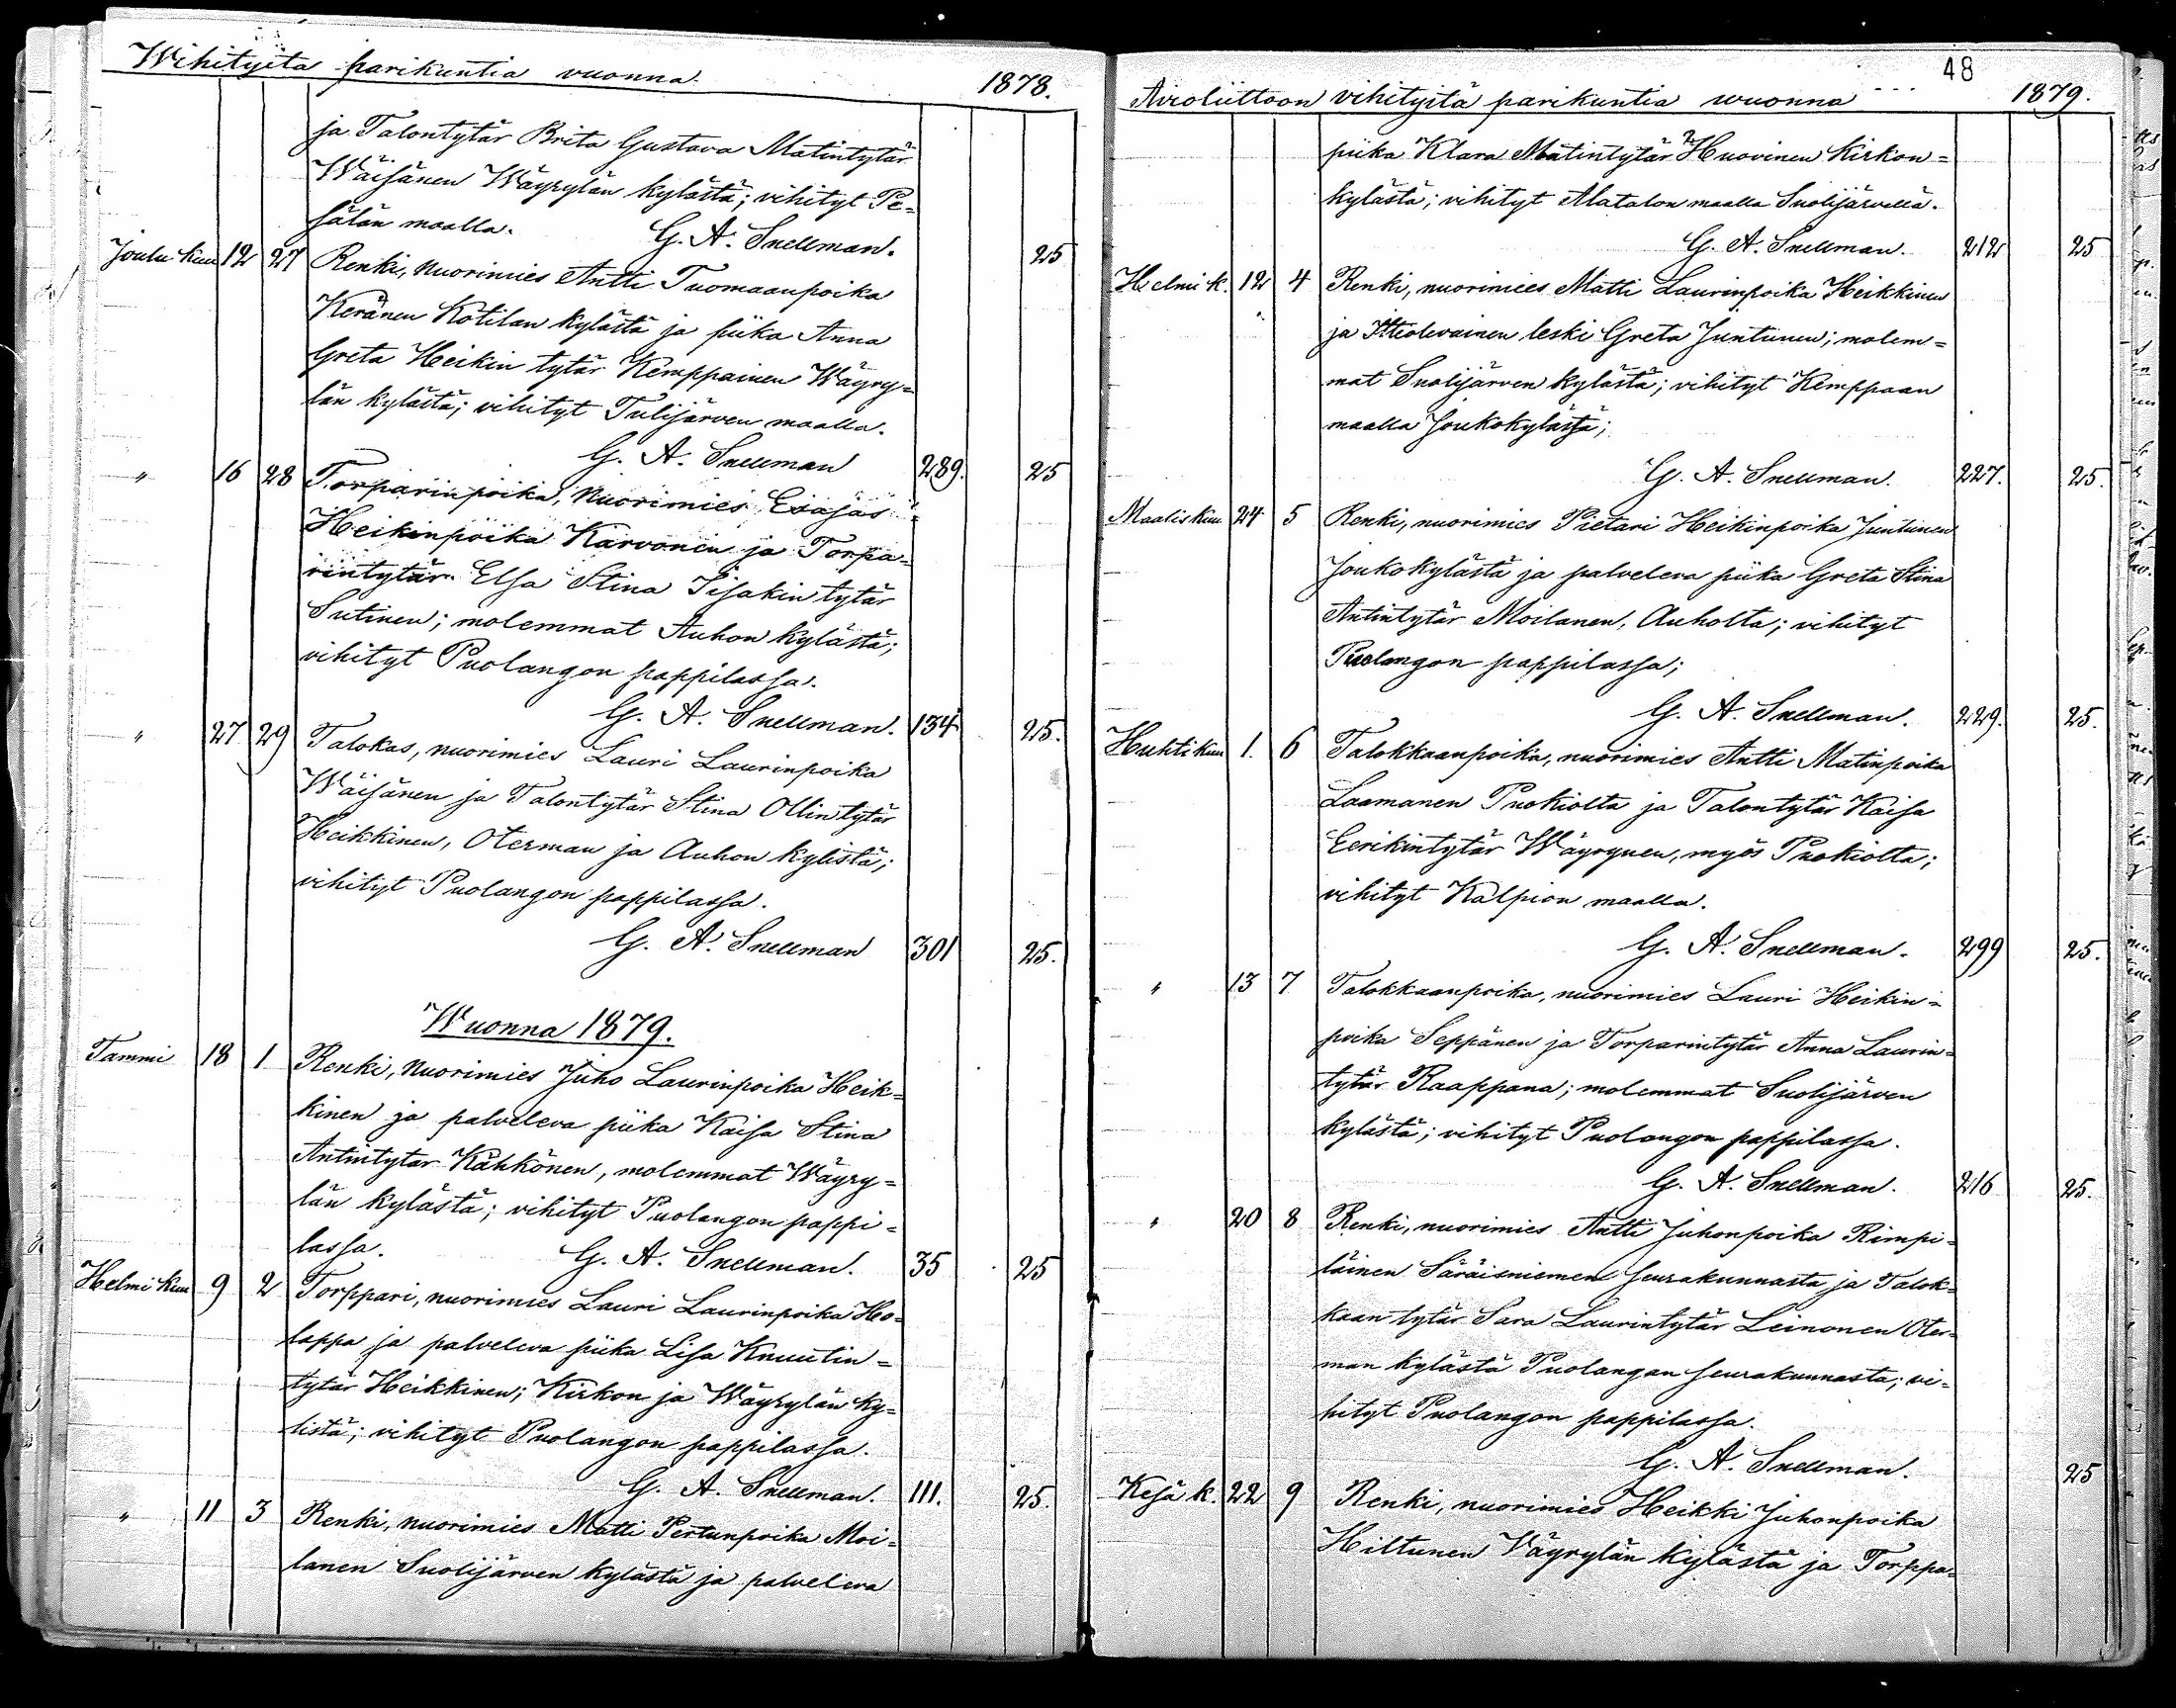 Wihityitä parikuntia vuonna 1878.
ja Talontytär Brita Gustava Matintytär
Wäisänen Wäyrylän kylästä; vihityt Pe=
sälän maalla. G. A. Snellman. 25
Joulu kuu 12 27 Renki, nuorimies Antti Tuomaanpoika
Keränen Kotilan kylästä ja piika Anna
Greta Heikin tytär Kemppainen Wäyry=
län kylästä; vihityt Tulijärven maalla.
G. A. Snellman 289. 25
" 16 28 Torparinpoika, nuorimies Esajas
Heikinpoika Karvonen ja Torpa=
rintytär Elsa Stina Iisakin tytär
Sutinen; molemmat Auhon kylästä;
vihityt Puolangon pappilassa.
G. A. Snellman. 134 25.
" 27 29 Talokas, nuorimies Lauri Laurinpoika
Wäisänen ja Talontytär Stina Ollin tytär
Heikkinen, Oterman ja Auhon kylistä;
vihityt Puolangon pappilassa.
G. A. Snellman 301 25.
Wuonna 1879.
Tammi 18 1 Renki, nuorimies Juho Laurinpoika Heik=
kinen ja palveleva piika Kaisa Stina
Antintytar Kähkönen, molemmat Wäyry=
län kylästä; vihityt Puolangon pappi=
lassa. G. A. Snellman. 35 25
Helmi kuu 9 2 Torppari, nuorimies Lauri Laurinpoika Ho=
lappa ja palveleva piika Lisa Knuutin=
tytär Heikkinen; Kirkon ja Wäyrylän ky=
listä; vihityt Puolangon pappilassa.
G. A. Snellman. 111. 25.
" 11 3 Renki, nuorimies Matti Pertunpoika Moi=
lanen Suolijärven kylästä ja palveleva
48
Avioliittoon vihityitä parikuntia wuonna 1879.
piika Klara Matintytär Huovinen Kirkon=
kylästä; vihityt Alatalon maalla Suolijärvellä.
G. A. Snellman. 212 25
Helmi k. 12 4 Renki, nuorimies Matti Laurinpoika Heikkinen
ja Itteolevainen leski Greta Juntunen; molem=
mat Suolijärven kylästä; vihityt Kemppaan
maalla Joukokylässä;
G. A. Snellman. 227. 25.
Maalis kuu 24 5 Renki, nuorimies Pietari Heikinpoika Juntunen
Joukokylästä ja palveleva piika Greta Stina
Antintytär Moilanen, Auholta; vihityt
Puolangon pappilassa;
G. A. Snellman. 229. 25.
Huhti kuu 1. 6 Talokkaanpoika, nuorimies Antti Matinpoika
Laamanen Puokiolta ja Talontytär Kaisa
Eerikintytär Wäyrynen, myös Puokiolta;
vihityt Kalpion maalla.
G. A. Snellman. 299 25.
" 13 7 Talokkaanpoika, nuorimies Lauri Heikin=
poika Seppänen ja Torparintytär Anna Laurin=
tytär Raappana; molemmat Suolijärven
kylästä; vihityt Puolangon pappilassa.
G. A. Snellman. 216 25.
" 20 8 Renki, nuorimies Antti Juhonpoika Rimpi=
läinen Säräisniemen seurakunnasta ja Talok=
kaan tytär Sara Laurintytär Leinonen Oter=
man kylästä Puolangan seurakunnasta; vi=
hityt Puolangon pappilassa.
G. A. Snellman. 25
Kesä k. 22 9 Renki, nuorimies Heikki Juhonpoika
Hiltunen Väyrylän kylästä ja Torppa=